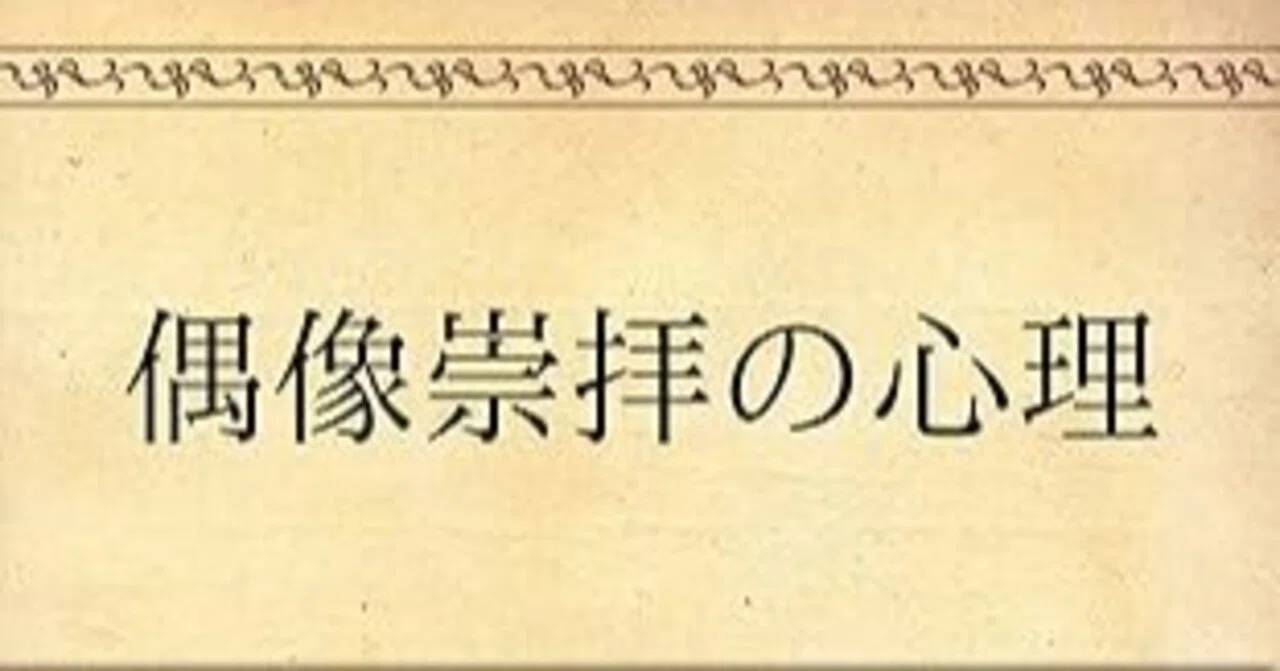 偶像崇拝の心理